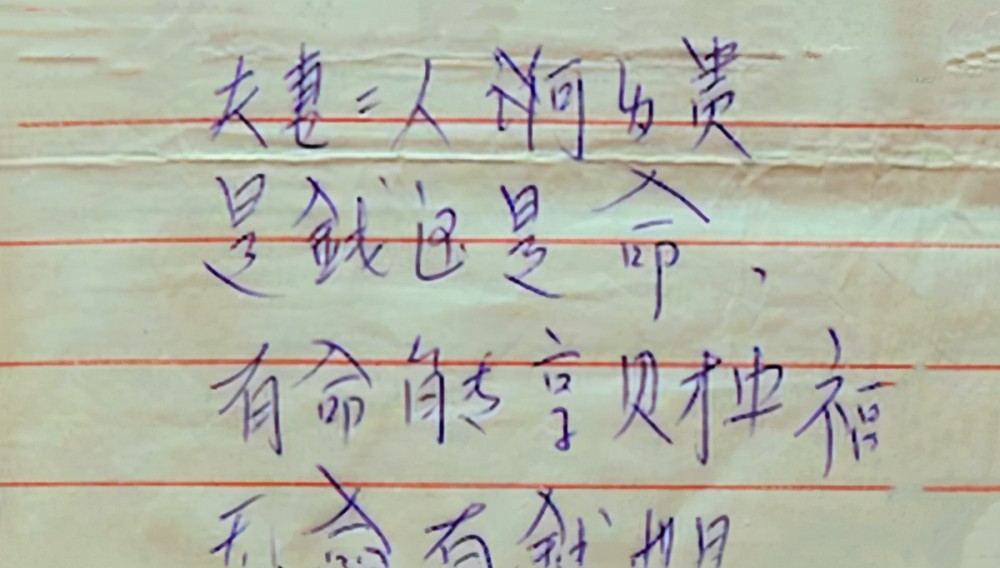 夫妻二人何为贵
是錢还是命、
有命能享财福
无命有錢